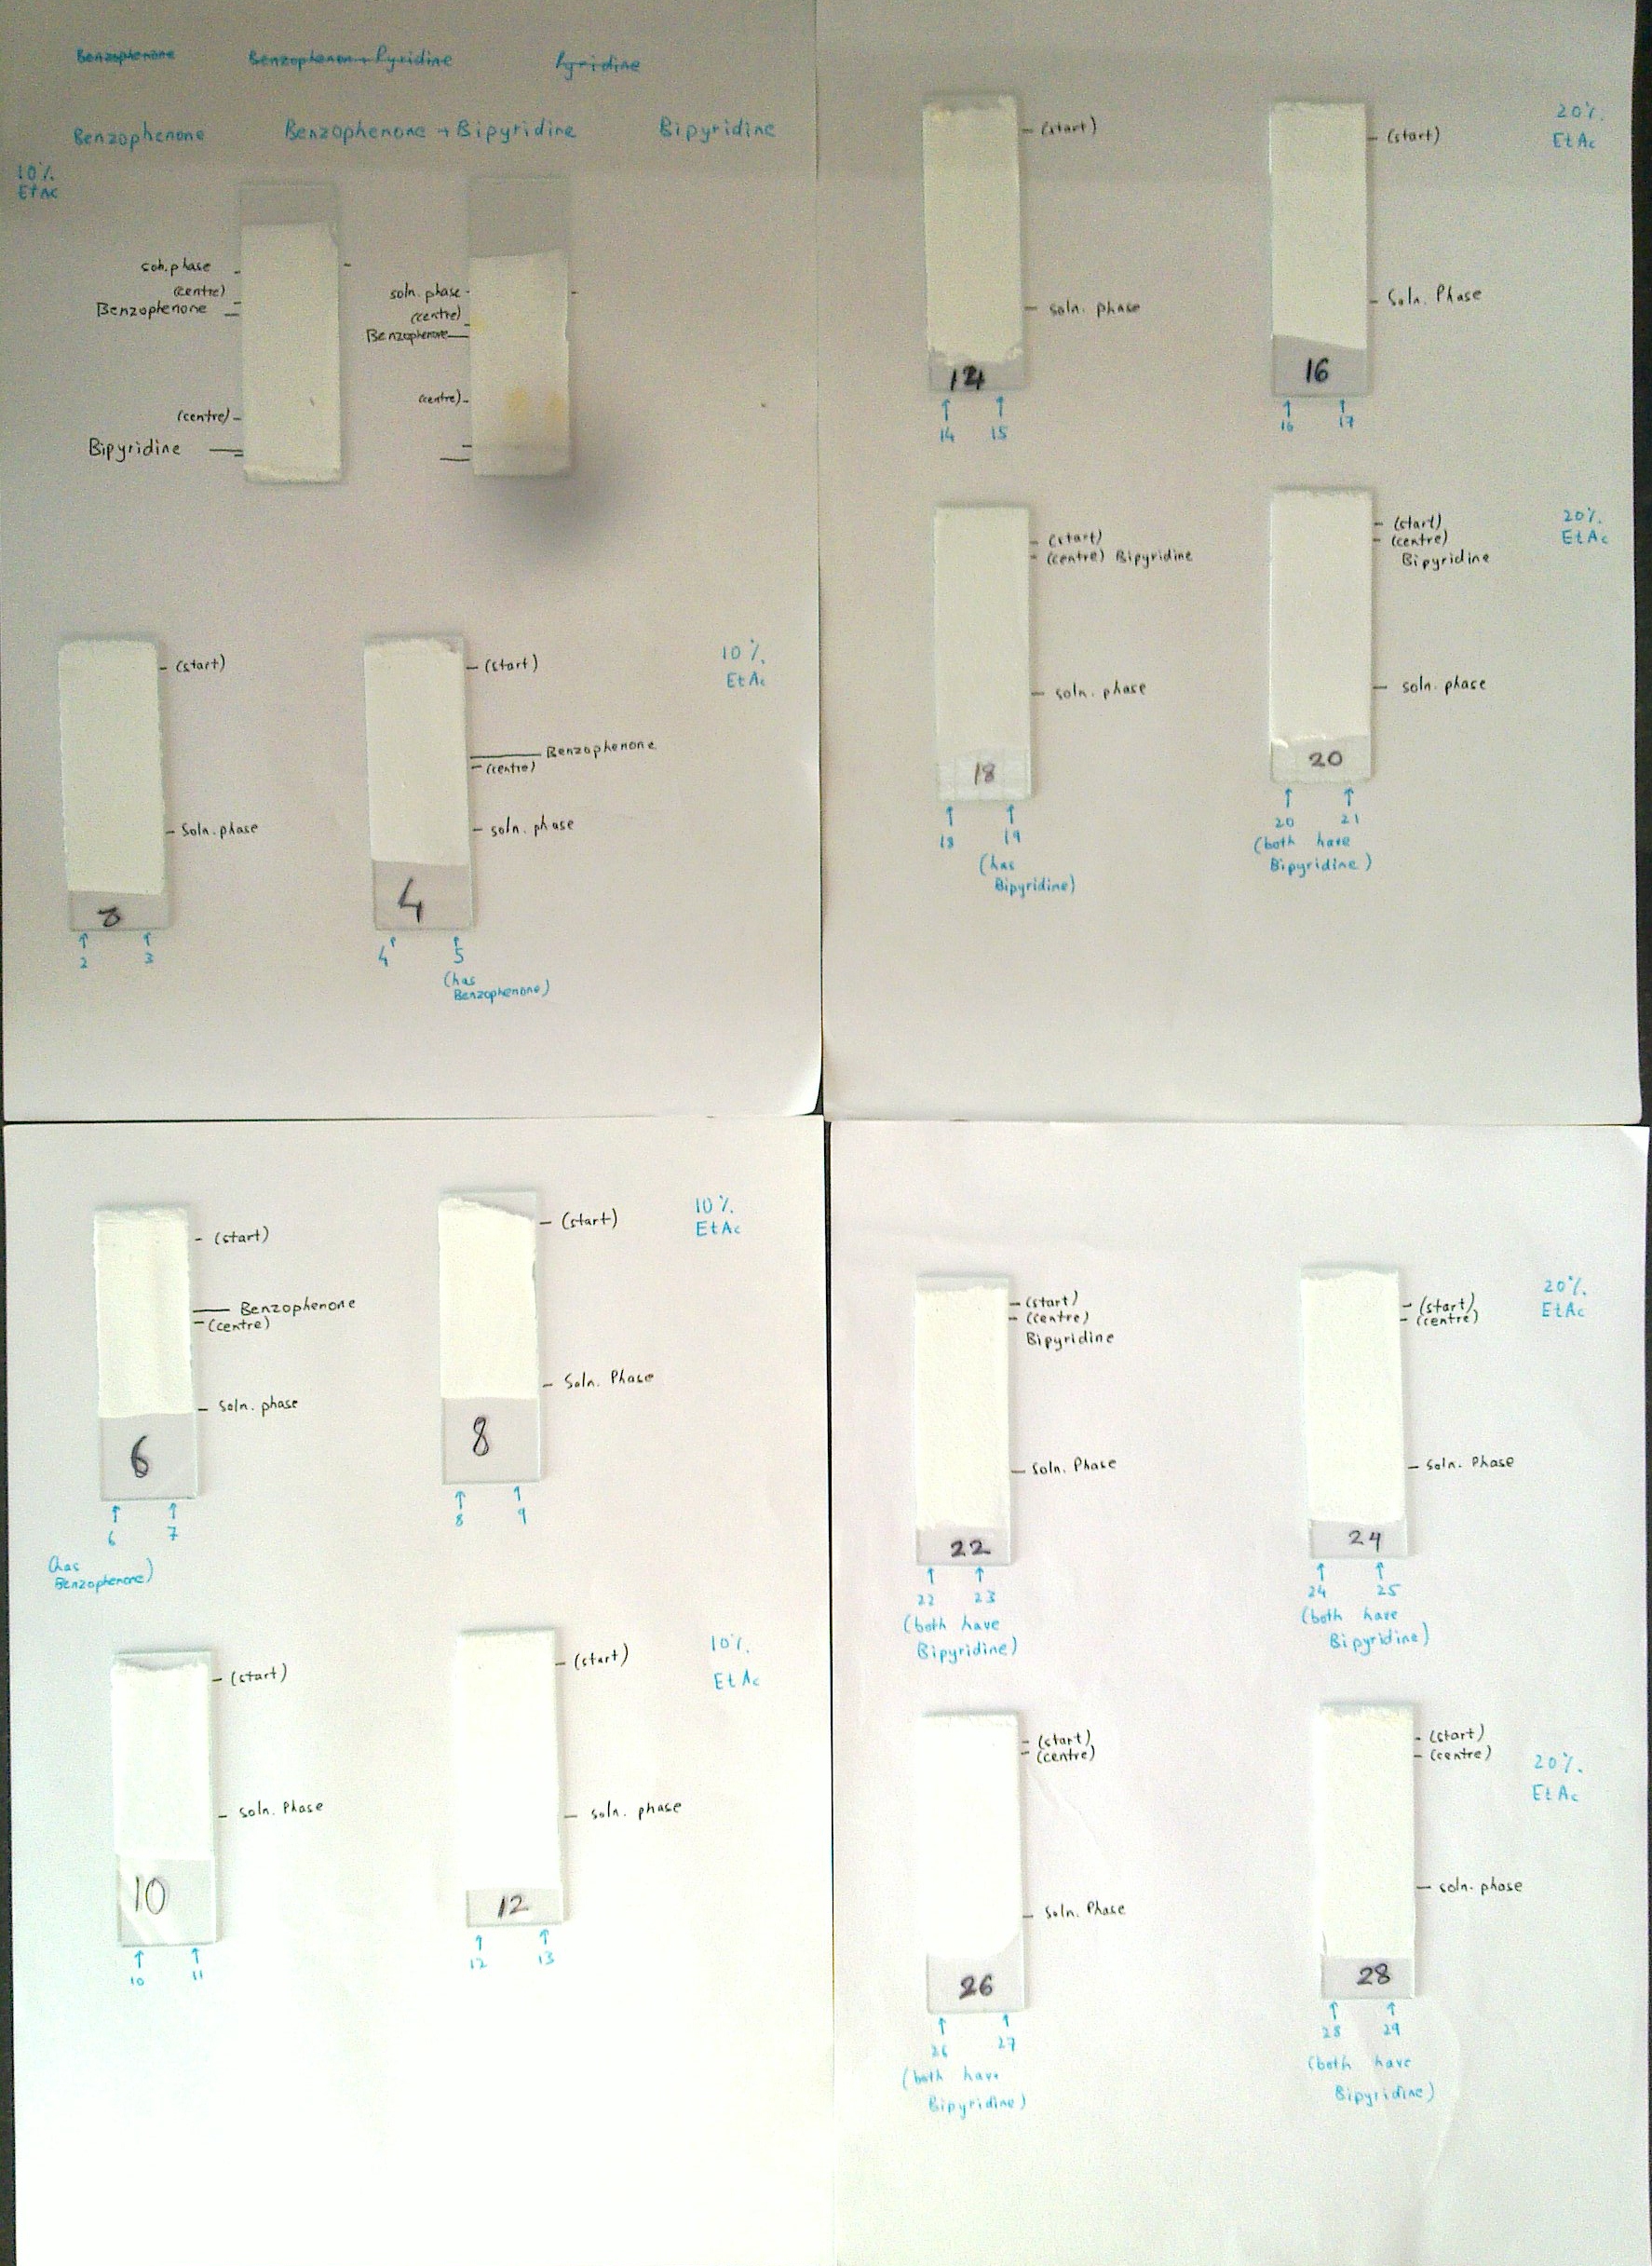 Benzophenone
Benzophenon + Pyridine
Pyridine
Benzophenone
Benzophenone + Bipyridine
Bipyridine
10%
EtAc
soln. phase
(centre)
Benzophenone
(centre)
Bipyridine
soln. phase
(centre)
Benzophenone
(centre)
(start)
Soln. phase
2
3
(start)
Benzophenone
(centre)
soln. phase
4
4
5
(has
Benzophenone)
10%
EtAc
(start)
soln. phase
14
14
15
(start)
Soln. Phase
16
16
17
20%
EtAc
(start)
(centre) Bipyridine
soln. phase
18
18
19
(has
Bipyridine)
(start)
(centre)
Bipyridine
soln. phase
20
20
21
(both have
Bipyridine)
20%
EtAc
(start)
Benzophenone
(centre)
Soln. phase
6
6
7
(has
Benzophenone)
(start)
Soln. Phase
8
8
9
10%
EtAc
(start)
soln. Phase
10
10
11
(start)
soln. phase
12
12
13
10%
EtAc
(start)
(centre)
Bipyridine
Soln. Phase
22
22
23
(both have
Bipyridine)
(start)
(centre)
Soln. Phase
24
24
25
(both have
Bipyridine)
20%
EtAc
(start)
(centre)
Soln. Phase
26
26
27
(both have
Bipyridine)
(start)
(centre)
soln. phase
28
28
29
(both have
Bipyridine)
20%
EtAc